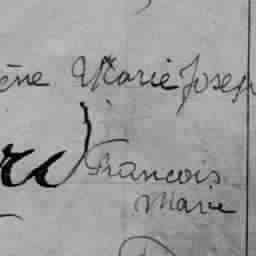 ène Marie Josep
rd François
Marie